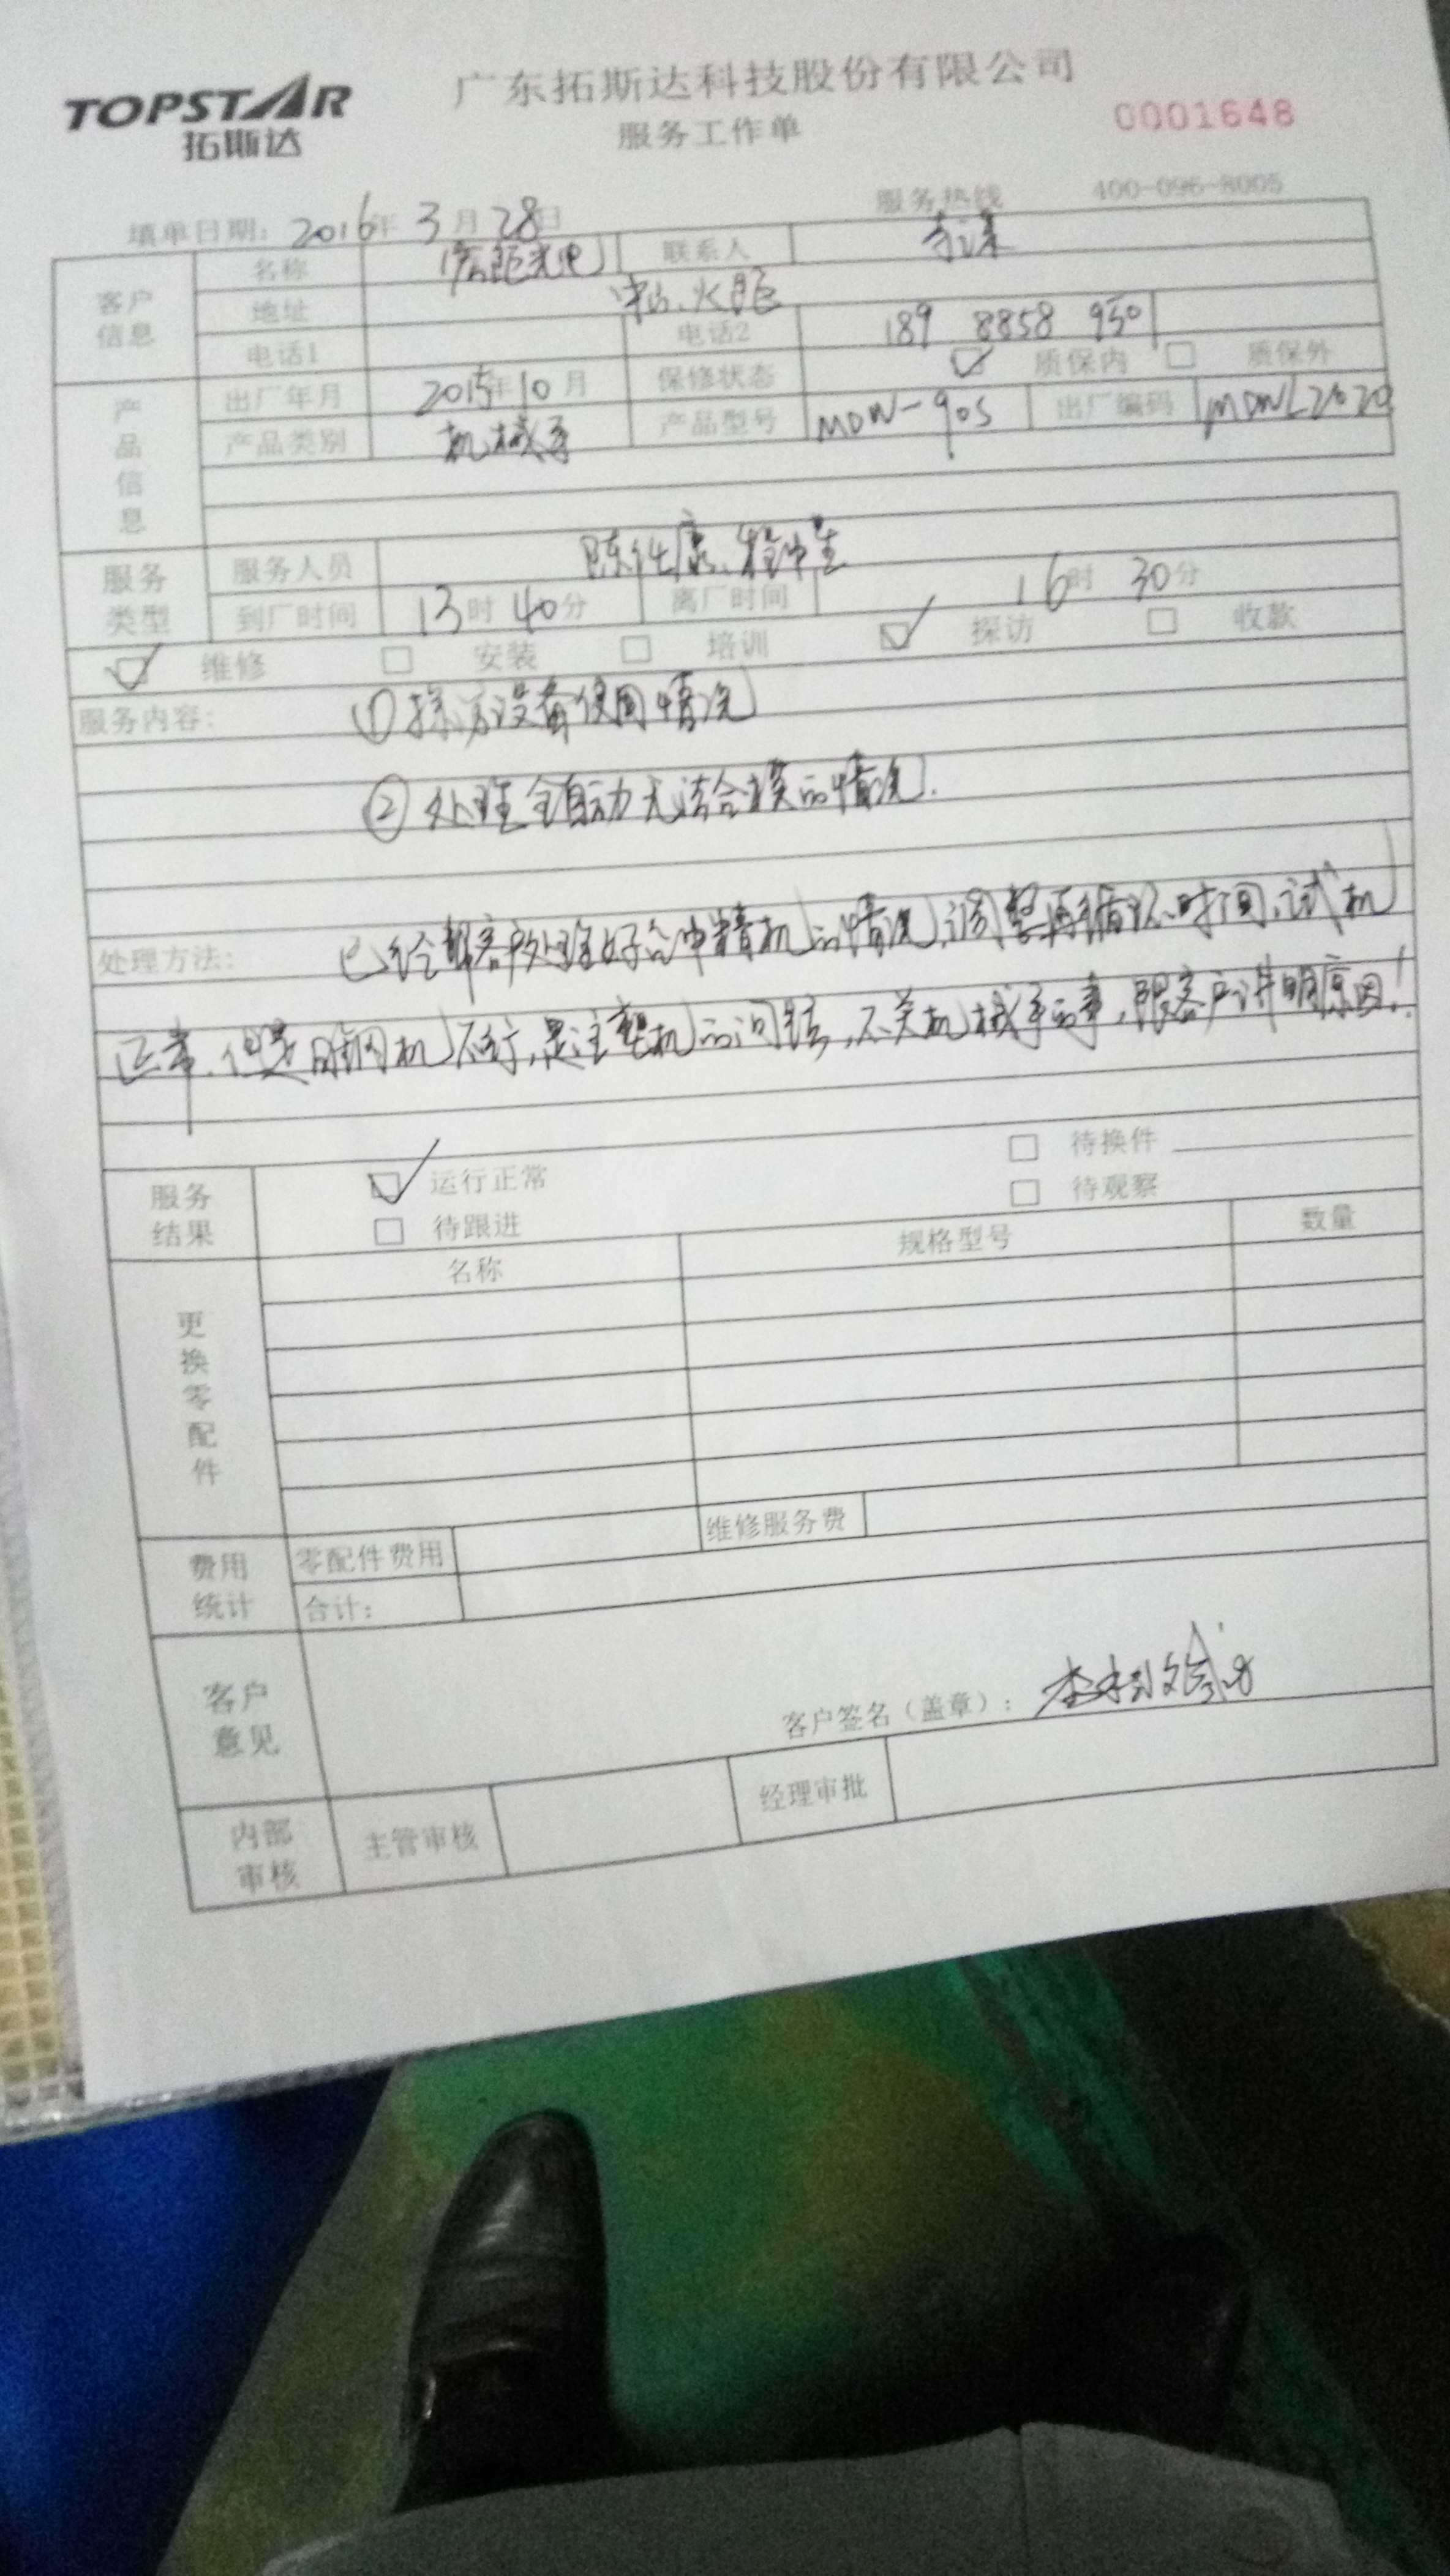 TOPSTAR
拓斯达
广东拓斯达科技股份有限公司
服务工作单
0001648
填单日期: 2016年 3月 28日
服务热线 400-096-8005
客户信息
名称 光电 联系人
地址 中山.火炬
电话1 电话2 189 8858 9501
产品信息
出厂年月 2015年10月 保修状态 质保内 质保外
产品类别 机械手 产品型号 MDW-90S 出厂编码 MDWL2020
服务类型
服务人员
到厂时间 13时40分 离厂时间 16时30分
维修 安装 培训 探访 收款
服务内容: ①探访设备使用情况
②处理全自动无法合模的情况.
处理方法: 已经帮客户处理好 的情况,调整再循环时间,试机
正常.但是 机不行,是注塑机的问题,不关机械手的事,跟客户讲明原因!
服务结果
运行正常 待换件
待跟进 待观察
更换零配件
名称 规格型号 数量
费用统计
零配件费用 维修服务费
合计:
客户意见
客户签名(盖章):
内部审核
主管审核 经理审批